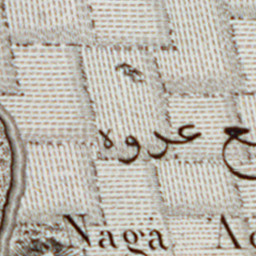 ع عروه
Naga A